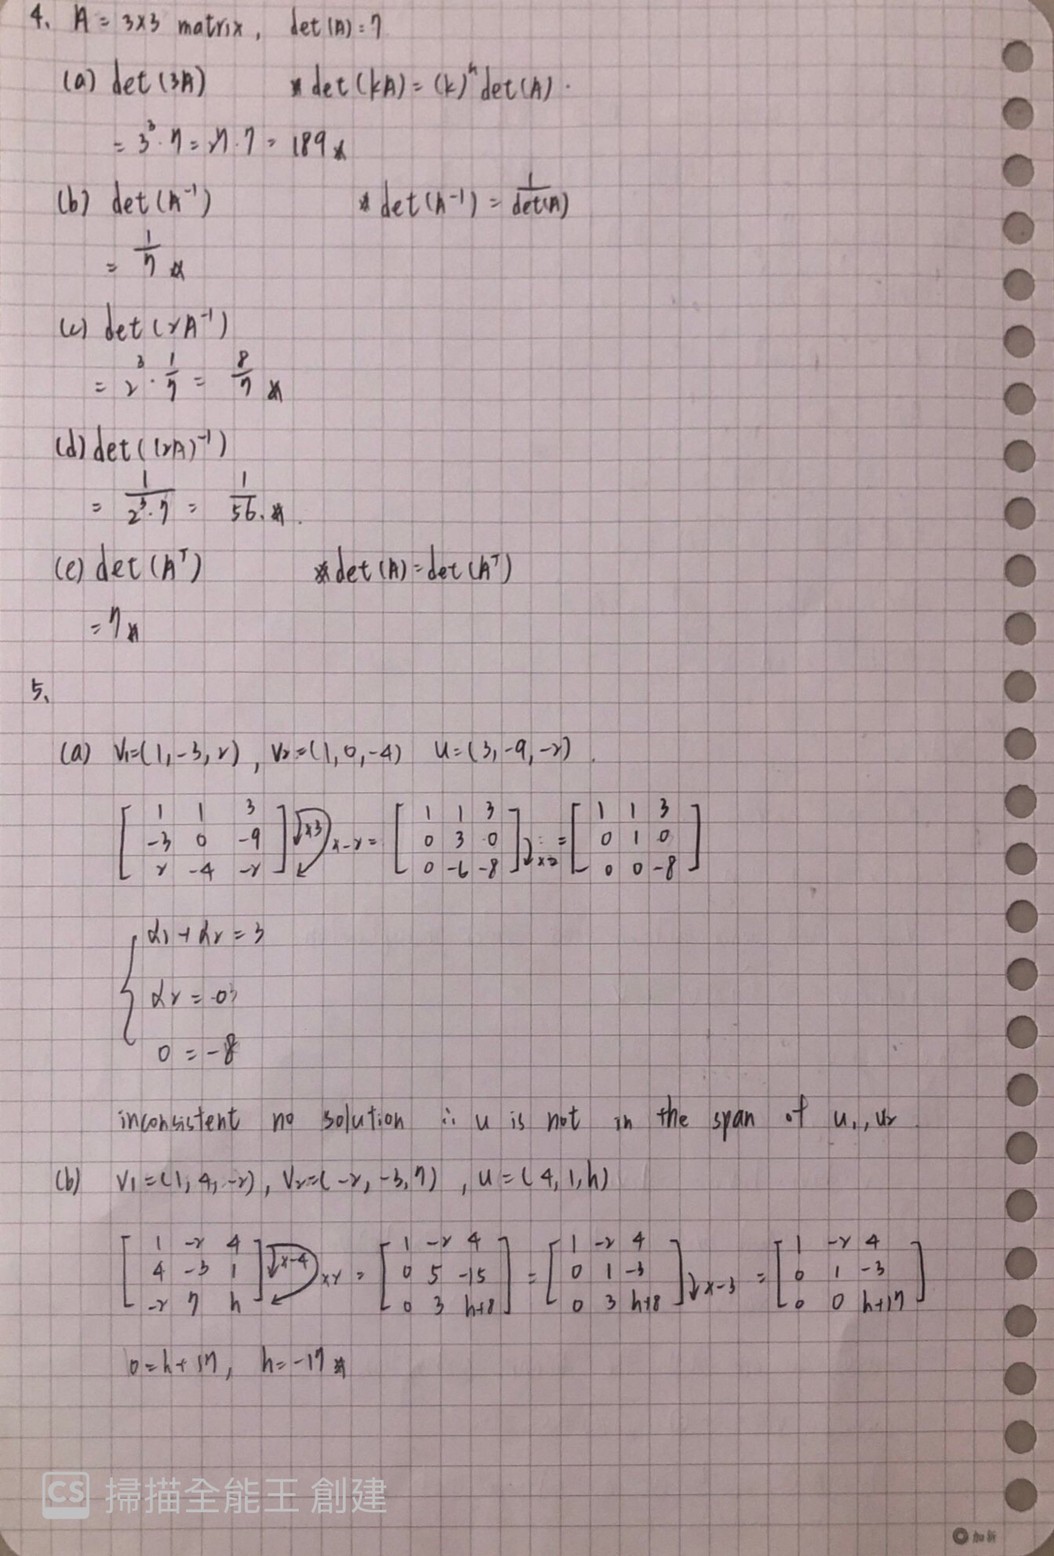 4. A = 3x3 matrix, det(A)=7
(a) det(3A) * det(kA) = (k)^n det(A).
= 3^3·7 = 27·7 = 189
(b) det(A^-1) * det(A^-1) = 1/det(A)
= 1/7
(c) det(2A^-1)
= 2^3 · 1/7 = 8/7
(d) det((2A)^-1)
= 1/(2^3·7) = 1/56.
(e) det(A^T) * det(A) = det(A^T)
= 7
5.
(a) V1=(1,-3,2), V2=(1,0,-4) u=(3,-9,-2).
[ 1 1 3 ] [ 1 1 3 ] [ 1 1 3 ]
[ -3 0 -9 ] x3 x-2 = [ 0 3 0 ] x2 = [ 0 1 0 ]
[ 2 -4 -2 ] [ 0 -6 -8 ] [ 0 0 -8 ]
α1 + α2 = 3
α2 = 0
0 = -8
inconsistent no solution ∴ u is not in the span of u1, u2
(b) V1=(1,4,-2), V2=(-2,-3,7), u=(4,1,h)
[ 1 -2 4 ] [ 1 -2 4 ] [ 1 -2 4 ] [ 1 -2 4 ]
[ 4 -3 1 ] x-4 x2 = [ 0 5 -15 ] = [ 0 1 -3 ] x-3 = [ 0 1 -3 ]
[ -2 7 h ] [ 0 3 h+8 ] [ 0 3 h+8 ] [ 0 0 h+17 ]
0=h+17, h=-17
CS 掃描全能王 創建
加新